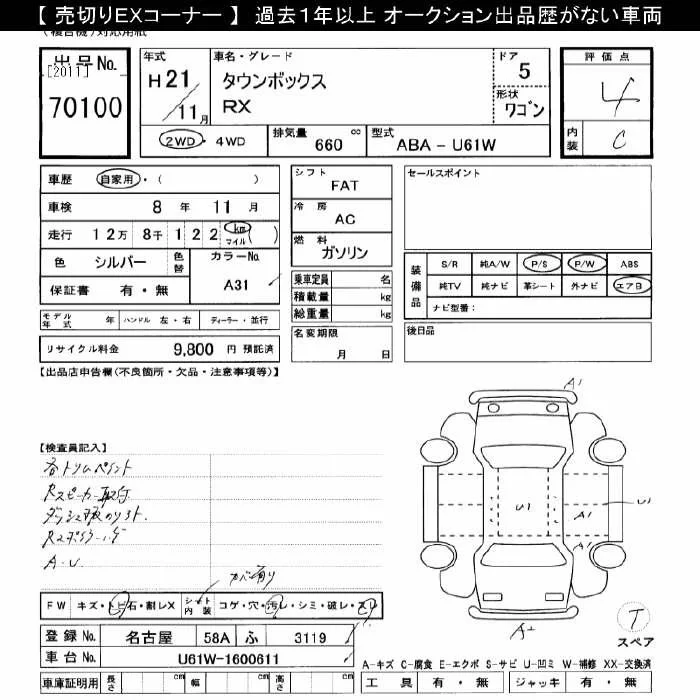 【 売切りEXコーナー 】 過去１年以上 オークション出品歴がない車両
(複合機)対応用紙
出品No.
[2011]
70100
年式
H21/11月
車名・グレード
タウンボックス
RX
ドア
5
形状
ワゴン
評価点
4
内装
C
2WD・4WD
排気量 660 cc
型式 ABA - U61W
車歴 自家用・( )
車検 8 年 11 月
走行 12万 8千 1 2 2 (km マイル)
色 シルバー 色替 カラーNo. A31
保証書 有・無
モデル年式 年 ハンドル 左・右 ディーラー・並行
リサイクル料金 9,800 円 預託済
シフト
FAT
冷房
AC
燃料
ガソリン
乗車定員 名
積載量 kg
総重量 kg
名変期限
月 日
セールスポイント
装備品
S/R 純A/W P/S P/W ABS
純TV 純ナビ 革シート 外ナビ エアB
ナビ型番:
後日品
【出品店申告欄(不良箇所・欠品・注意事項等)】
【検査員記入】
各トリムペイント
Rスピーカー取付
A-U
A1
U1
U1
A1
A2
T
スペア
FW キズ・トビ石・割レX シート内装 コゲ・穴・汚レ・シミ・破レ・スレ
登録No. 名古屋 58A ふ 3119
車台No. U61W-1600611
車庫証明用 長さ cm 幅 cm 高さ cm
A-キズ C-腐食 E-エクボ S-サビ U-凹ミ W-補修 XX-交換済
工具 有・無 ジャッキ 有・無